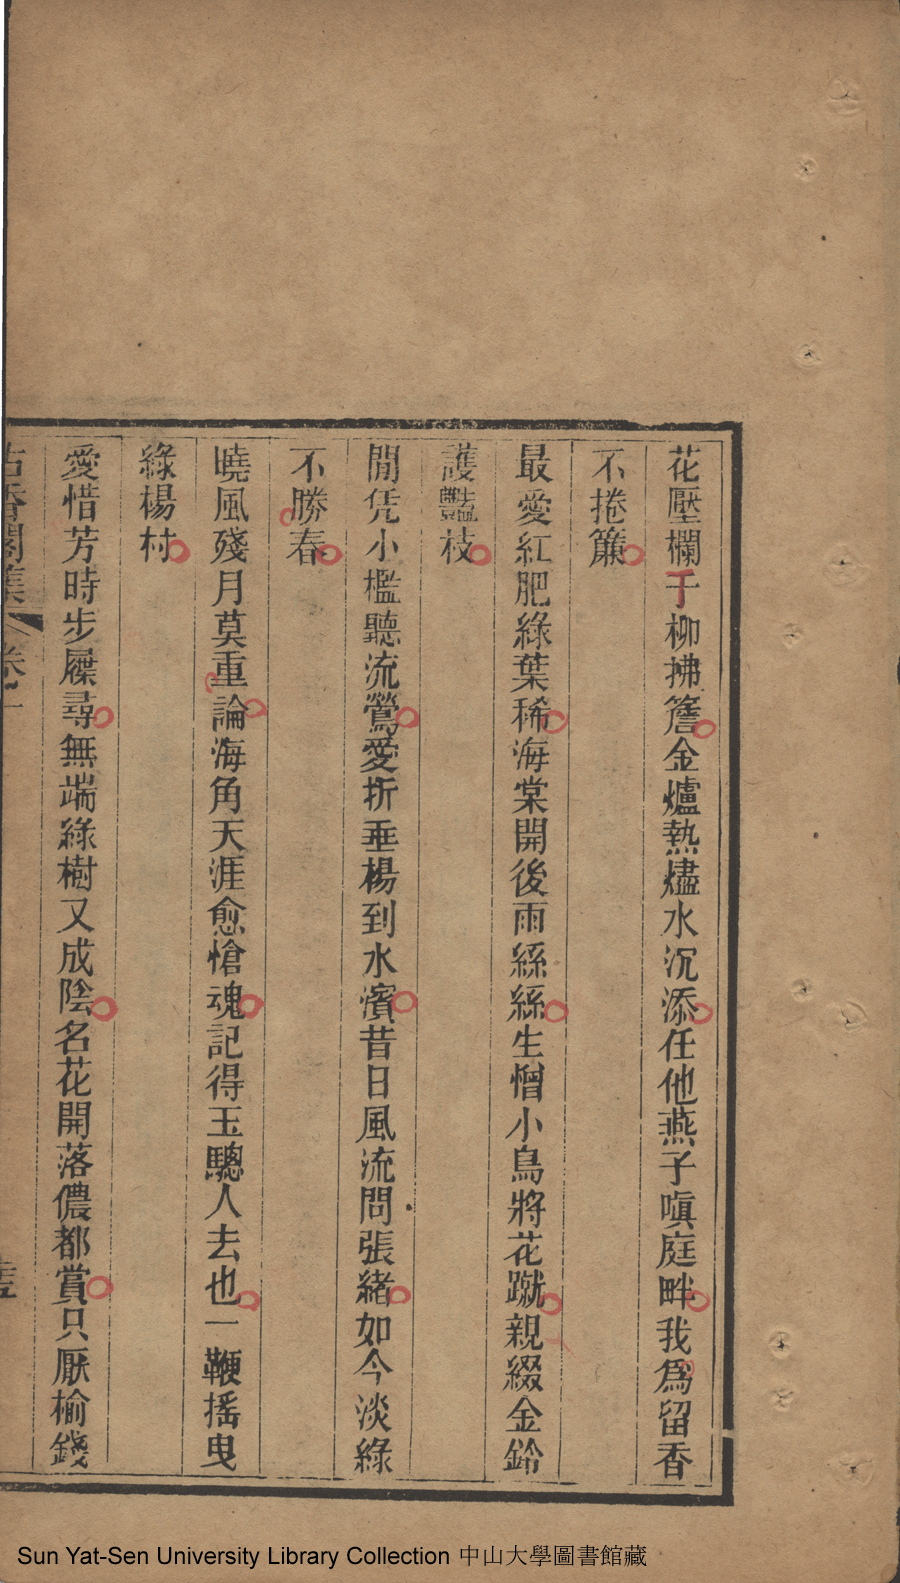 花壓欄干柳拂簷金爐熱燼水沉添任他燕子嗔庭畔我為留香
不捲簾
最愛紅肥綠葉稀海棠開後雨絲絲生憎小鳥將花蹴親綴金鈴
護豔枝
閒凭小檻聽流鶯愛折垂楊到水濱昔日風流問張緒如今淡綠
不勝春
曉風殘月莫重論海角天涯愈愴魂記得玉驄人去也一鞭搖曳
綠楊村
愛惜芳時步屧尋無端綠樹又成陰名花開落儂都賞只厭榆錢
古香閣集 卷一
Sun Yat-Sen University Library Collection 中山大學圖書館藏